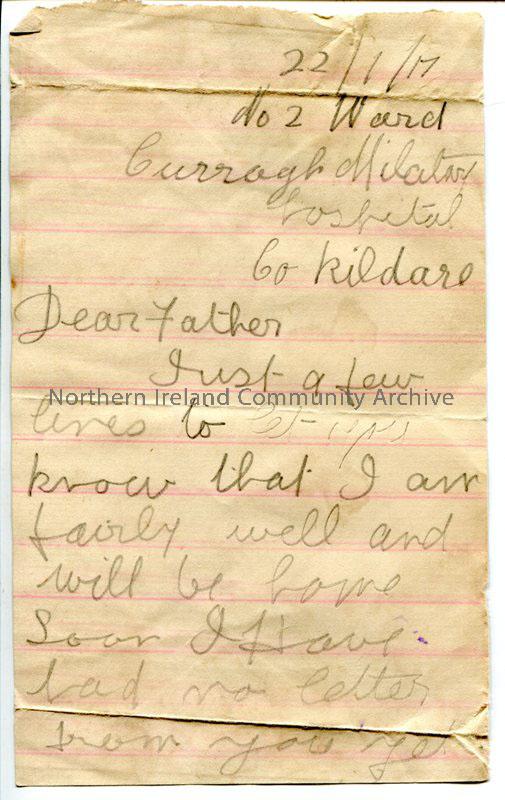 22/1/17
No 2 Ward
Curragh Milatry
Hospital
Co Kildare
Dear Father
Just a few
Northern Ireland Community Archive
lines to let you
know that I am
fairly well and
will be home
Soon I Have
had no letter
from you yet